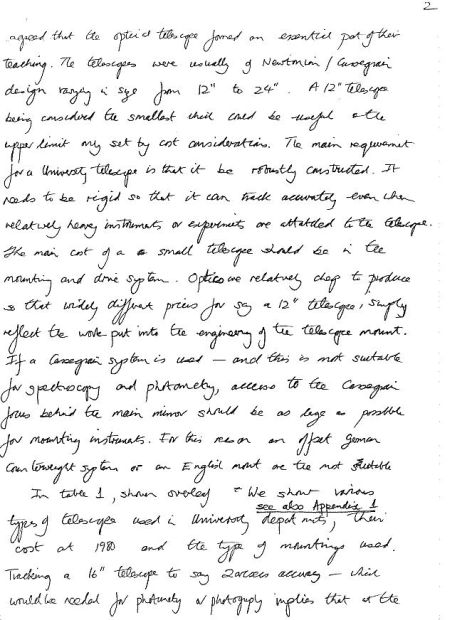 2
agreed that the optical telescope formed an essential part of their
teaching. The telescopes were usually of Newtonian / Cassegrain
design ranging in size from 12" to 24". A 12" telescope
being considered the smallest which could be useful &the
upper limit only set by cost considerations. The main requirement
for a University telescope is that it be robustly constructed. It
needs to be rigid so that it can track accurately even when
relatively heavy instruments or experiments are attached to the telescope.
The main cost of a small telescope should be in the
mounting and drive system. Optics are relatively cheap to produce
so that widely different prices for say a 12" telescope, simply
reflect the work put into the engineering of the telescope mount.
If a Cassegrain system is used — and this is most suitable
for spectroscopy and photometry, access to the Cassegrain
focus behind the main mirror should be as large as possible
for mounting instruments. For this reason an offset German
Counterweight system or an English mount are the most suitable
In table 1, shown overleaf We show various
see also Appendix 1
types of telescopes used in University departments, their
cost at 1980 and the type of mountings used.
Tracking a 16" telescope to say 2arcsecs accuracy — which
would be needed for photometry or photography implies that at the